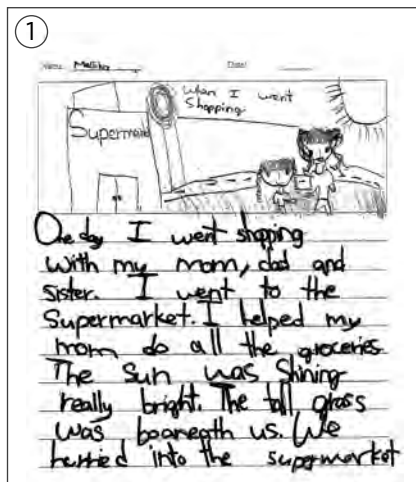 1
Name Mallika Date
When I went
Shopping.
Supermarket
One day I went shopping
with my mom, dad and
sister. I went to the
Supermarket. I helped my
mom do all the groceries
The Sun was Shining
really bright. The tall grass
was beaneath us. We
hurried into the supermarket